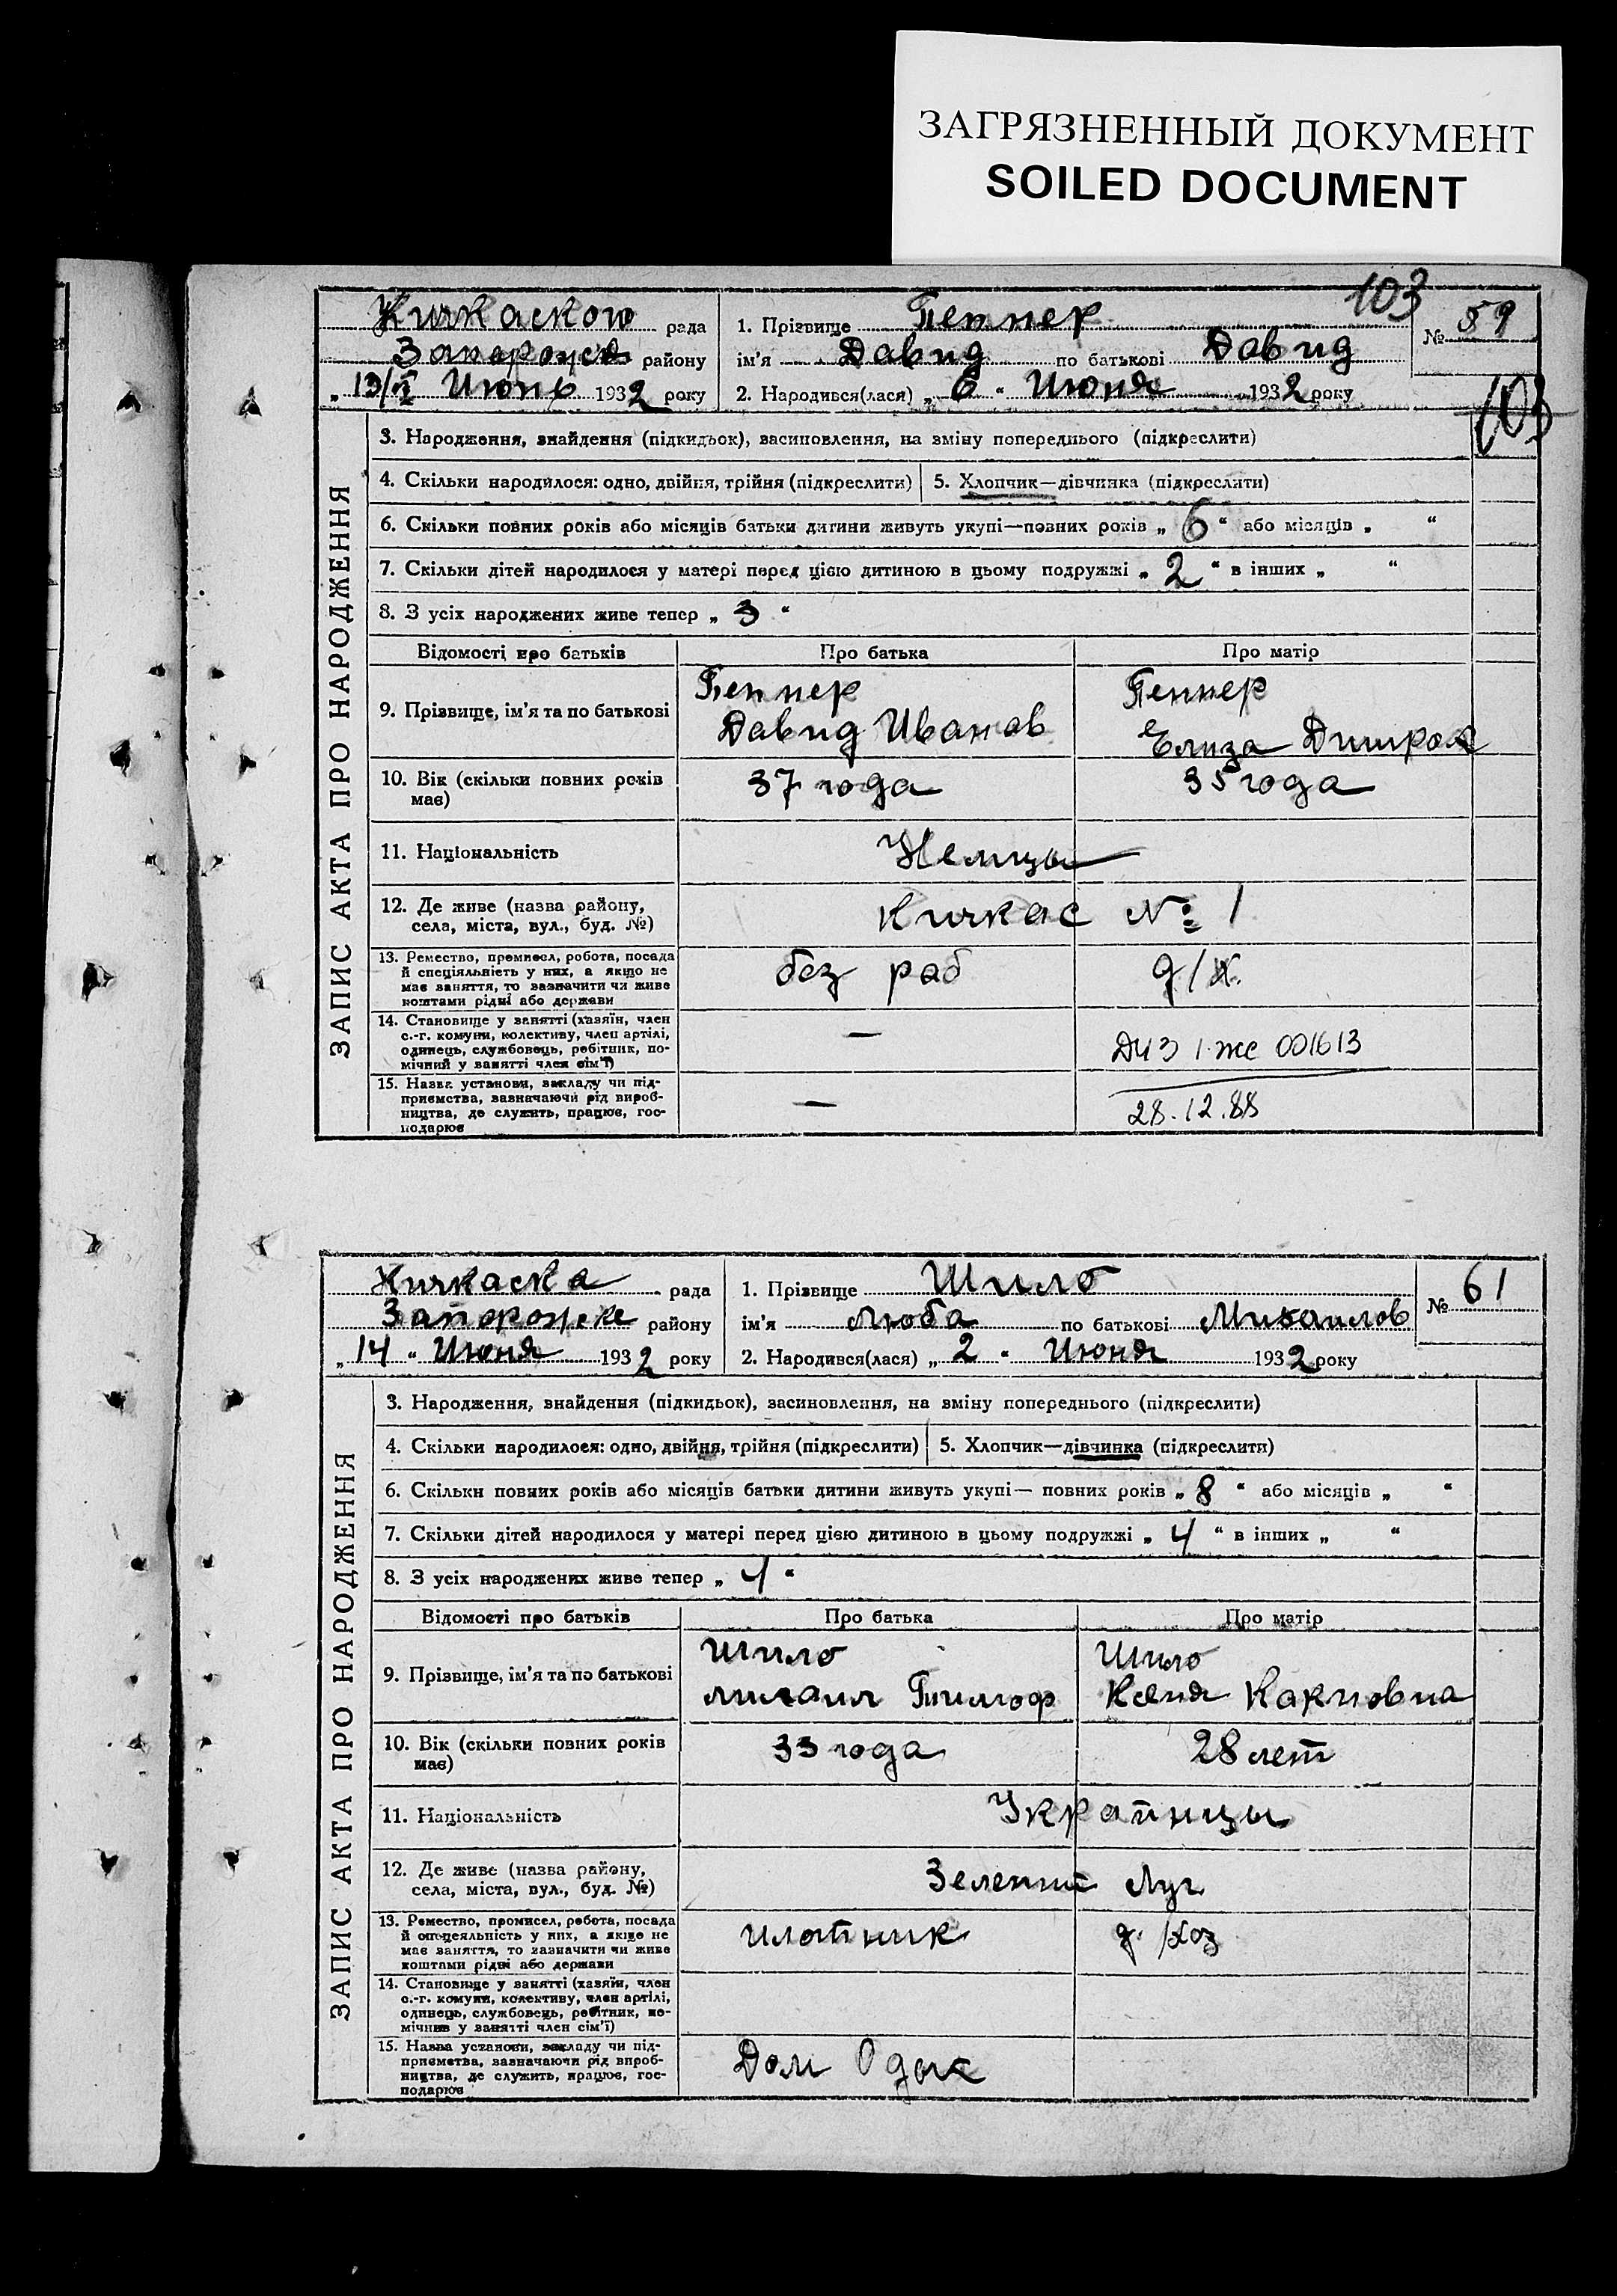 ЗАГРЯЗНЕННЫЙ ДОКУМЕНТ
SOILED DOCUMENT
103
Кичкаского рада
района
„13/ Июнь 1932 року
1. Прізвище Пеннер
ім'я Давид по батькові Давид
2. Народився(лася) „6“ Июня 1932 року
№ 59
103
ЗАПИС АКТА ПРО НАРОДЖЕННЯ
3. Народження, знайдення (підкидьок), засиновлення, на зміну попереднього (підкреслити)
4. Скільки народилося: одно, двійня, трійня (підкреслити) 5. Хлопчик—дівчинка (підкреслити)
6. Скільки повних років або місяців батьки дитини живуть укупі—повних років „6“ або місяців „ “
7. Скільки дітей народилося у матері перед цією дитиною в цьому подружжі „2“ в інших „ “
8. З усіх народжених живе тепер „3“
Відомості про батьків Про батька Про матір
9. Прізвище, ім'я та по батькові
Пеннер
Давид Иванов
Пеннер
Елиза
10. Вік (скільки повних років
має)
37 года
35 года
11. Національність
Немцы
12. Де живе (назва району,
села, міста, вул., буд. №)
Кичкас № 1
13. Ремество, промисел, робота, посада
й спеціяльність у них, а якщо не
має заняття, то зазначити чи живе
коштами рідні або держави
без раб
д/х.
14. Становище у занятті (хазяїн, член
с.-г. комуни, колективу, член артілі,
одинець, службовець, робітник, по-
мічний у занятті член сім'ї)
—
15. Назва установи, закладу чи під-
приємства, зазначаючи рід вироб-
ництва, де служить, працює, гос-
подарює
—
001613
28.12.88
Кичкаска рада
Запорожске району
„14“ Июня 1932 року
1. Прізвище Шило
ім'я Люба по батькові Михаилов
2. Народився(лася) „2“ Июня 1932 року
№ 61
ЗАПИС АКТА ПРО НАРОДЖЕННЯ
3. Народження, знайдення (підкидьок), засиновлення, на зміну попереднього (підкреслити)
4. Скільки народилося: одно, двійня, трійня (підкреслити) 5. Хлопчик—дівчинка (підкреслити)
6. Скільки повних років або місяців батьки дитини живуть укупі— повних років „8“ або місяців „ “
7. Скільки дітей народилося у матері перед цією дитиною в цьому подружжі „4“ в інших „ “
8. З усіх народжених живе тепер „4“
Відомості про батьків Про батька Про матір
9. Прізвище, ім'я та по батькові
Шило
Михаил Тимоф
Шило
Ксеня Карповна
10. Вік (скільки повних років
має)
33 года
28 лет
11. Національність
Украинцы
12. Де живе (назва району,
села, міста, вул., буд. №)
Зелений Луг
13. Ремество, промисел, робота, посада
й спецеяльність у них, а якщо не
має заняття, то зазначити чи живе
коштами рідні або держави
плотник
д./хоз
14. Становище у занятті (хазяїн, член
с.-г. комуни, колективу, член артілі,
одинець, службовець, робітник, по-
мічник у занятті член сім'ї)
15. Назва установи, закладу чи під-
приємства, зазначаючи рід вироб-
ництва, де служить, працює, гос-
подарює
Дом